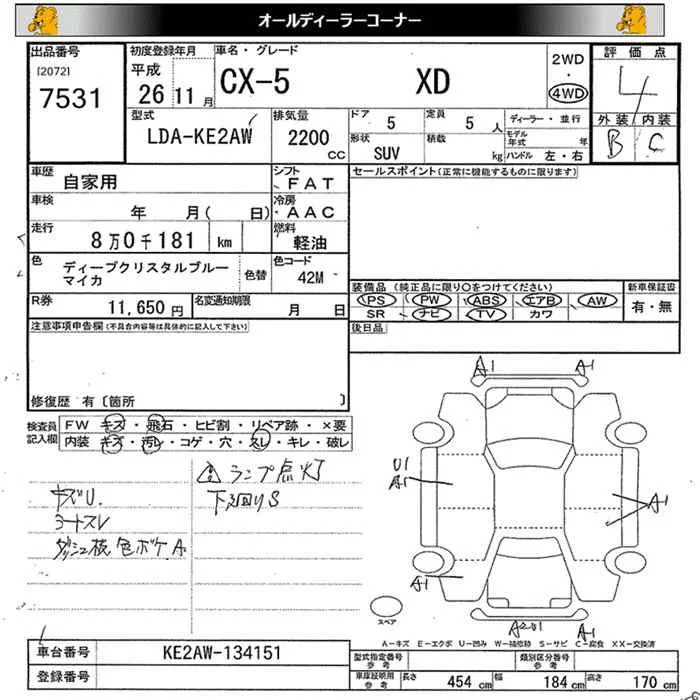 オールディーラーコーナー
出品番号
[2072]
7531
初度登録年月
平成
26 11 月
車名・グレード
CX-5 XD
2WD
・
4WD
評価点
4
外装 内装
B C
型式
LDA-KE2AW
排気量
2200
CC
ドア 5
定員 5 人
形状
SUV
積載
kg
ディーラー・並行
モデル
年式 年
ハンドル 左・右
車歴
自家用
シフト
FAT
車検
年 月( 日)
冷房
AAC
走行
8 万 0 千 181 km
燃料
軽油
色
ディープクリスタルブルー
マイカ
色替
色コード
42M
R券
11,650 円
名変通知期限
月 日
セールスポイント(正常に機能するものに限ります)
装備品 (純正品に限り○をつけてください)
PS PW ABS エアB AW
SR ナビ TV カワ
新車保証書
有・無
後日品
注意事項申告欄(不具合内容等は具体的に記入して下さい)
修復歴 有 [箇所 ]
検査員
記入欄
FW キズ・飛石・ヒビ割・リペア跡・×要
内装 キズ・汚レ・コゲ・穴・スレ・キレ・破レ
ランプ点灯
下廻りS
キズU.
シートスレ
ダッシュ板 色ボケ A
A1 A1
U1
A1
A1
A1
A2U1 A1
スペア
A-キズ E-エクボ U-凹み W-補修跡 S-サビ C-腐食 XX-交換済
車台番号
KE2AW-134151
登録番号
型式指定番号
参考
類別区分番号
参考
車庫証明用
参考
長さ 454 cm
幅 184 cm
高さ 170 cm